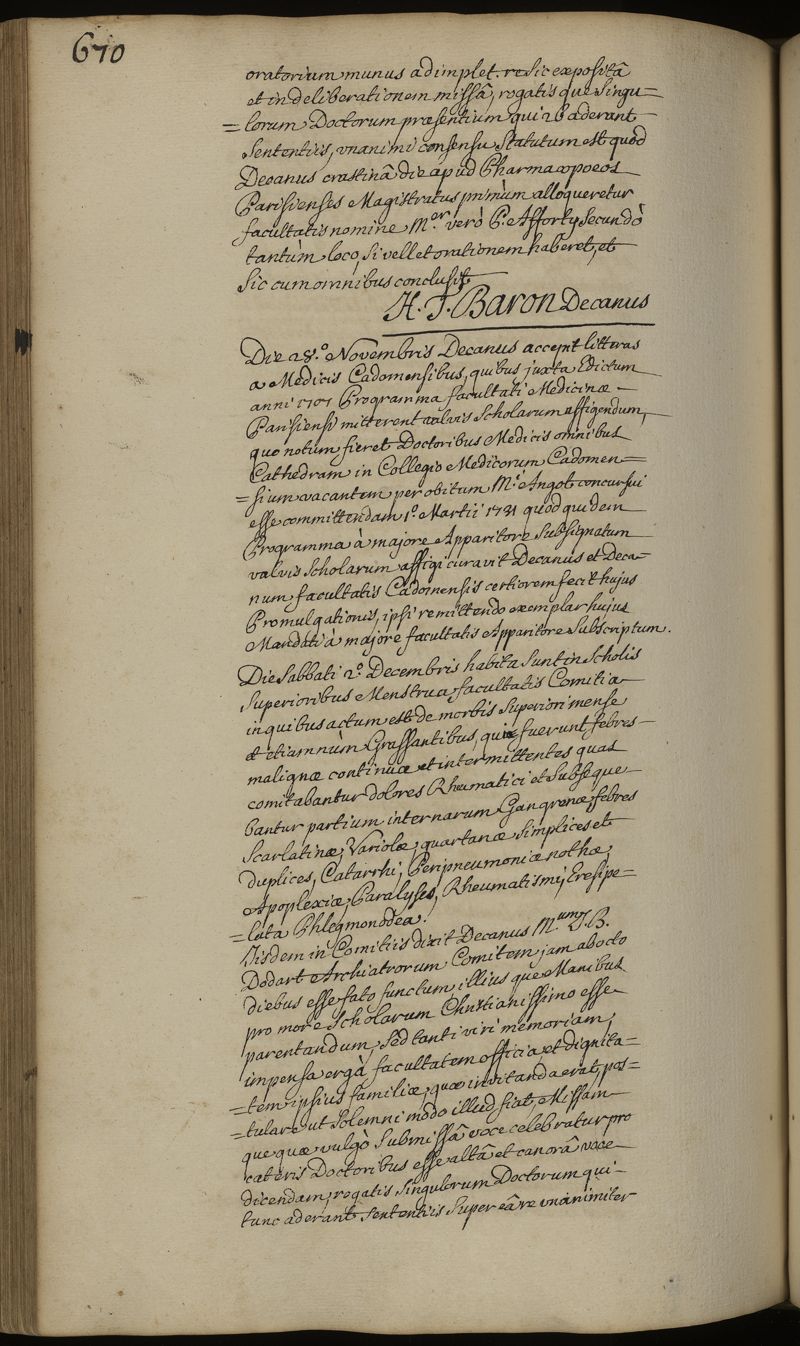 670
oratorium munus adimplet. re sic expositâ
et in deliberationem missâ, rogatisque singu=
=lorum Doctorum præsentium qui 26 aderant
Sententiis, unanimi consensu Statutum est quod
Decanus crastinâ die apud Pharmacopoeos
Parisienses Magistratus primùm alloqueretur
facultatis nomine Mer. verò P. Afforty secundò
tantùm loco, si vellet orationem haberet, et
Sic cum omnibus conclusit
H. T. Baron Decanus
Die 28.º Novembris Decanus accepit litteras
a Medicis Cadomensibus, quibus juxta Edictum
anni 1707 Programma facultati Medicinæ
Parisiensi mitterent valvis Scholarum affigendum,
quo notum fieret Doctoribus Medicis omnibus
Cathedram in Collegio Medicorum Cadomen=
=sium vacantem per obitum Mi. Angot concursui
esse committendam 1.º Martii 1731 quod quidem
Programma à majore Apparitore Subsignatum
valvis Scholarum affigi curavit Decanus et Deca-
num facultatis Cadomensis certiorem fecit hujus
Promulgationis, ipsi remittendo exemplar hujus
Mandati à majore facultatis Apparitore Subscriptum.
Die Sabbati 2.º Decembris habita sunt in Scholis
Superioribus Menstrua facultatis Comitia
in quibus actum est de morbis superiori mense
et etiamnùm Grassantibus, qui fuerunt, febres
malignæ continuæ et intermittentes quas
comitabantur dolores Rheumatici et subseque-
bantur partium internarum Gangrenæ, febres
Scarlatinæ, Variolæ, quartanæ simplices et
duplices, Catarrhi, Peripneumoniæ nothæ,
Apoplexiæ, Paralyses, Rheumatismi, Eresipe=
=lata Phlegmonodea.
Iisdem in Comitiis dixit Decanus M.um J. B.
Dodart Archiatrorum Comitem jam ab octo
diebus esse fato functum, illiusque Manibus
pro more Scholarum Christianissimo esse
parentandum, sed tanti viri memoriam,
impensa ergà facultatem officia et dignita=
=tem ipsius familiæ, quæ invitanda erat, pos=
=tulare ut Solemni modo illud fiat, Missam
que quæ vulgò Submissâ voce celebratur pro
cæteris Doctoribus esse altâ et canorâ voce
dicendam, rogatis singulorum Doctorum qui
tunc aderant sententiis super eâ re unanimiter